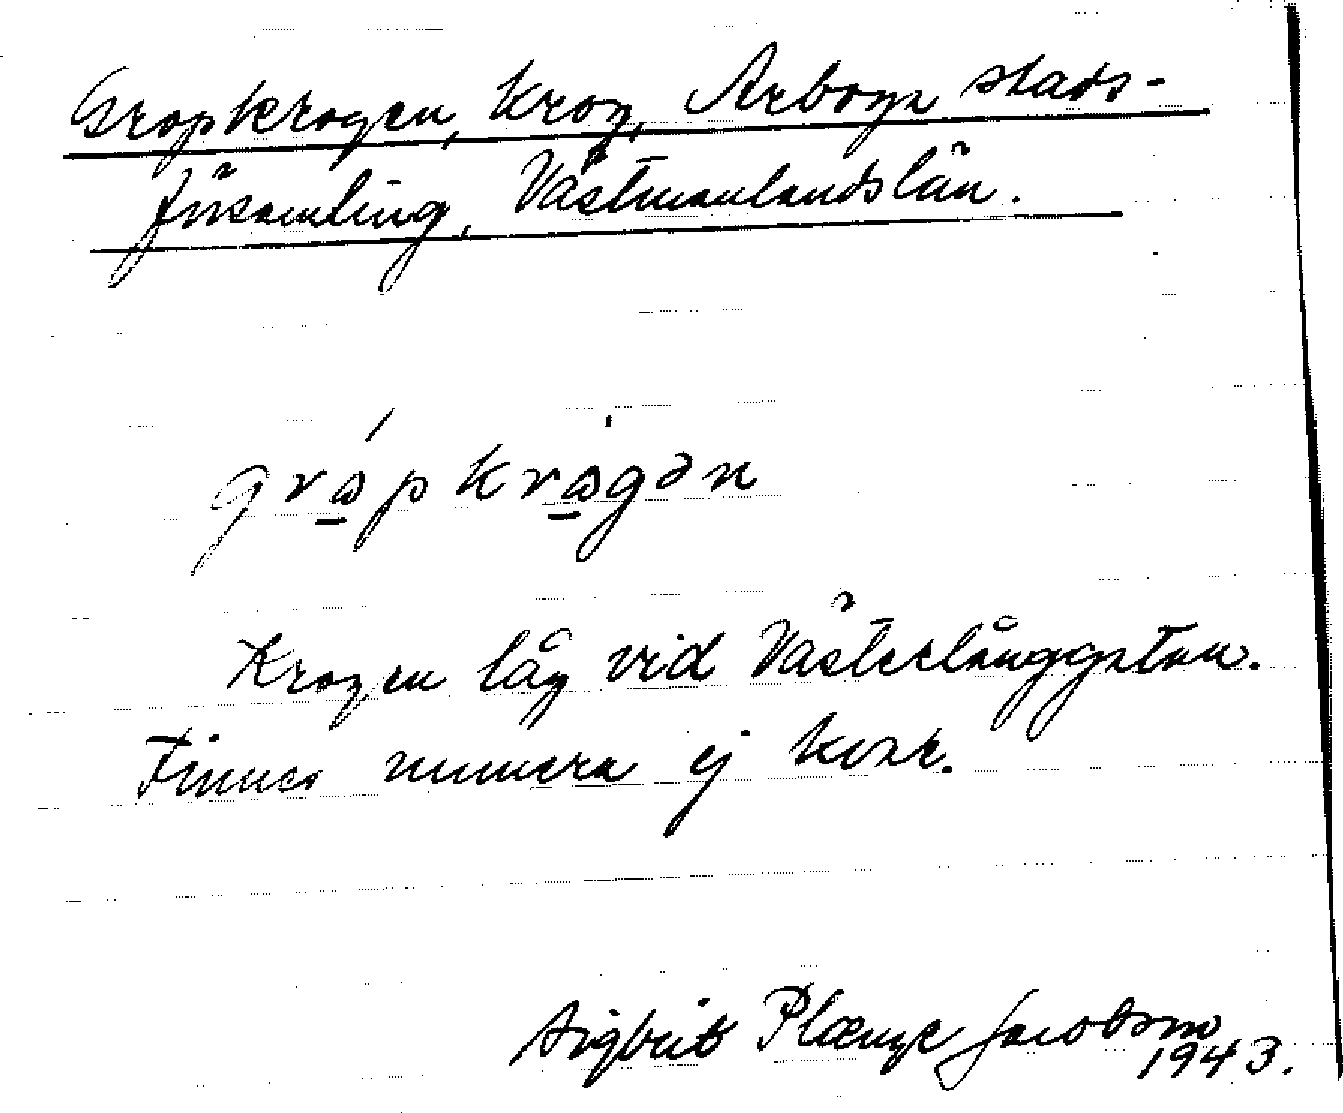 Gropkrogen, krog, Arboga stads-
församling, Västmanlands län.
gråpkrågən
Krogen låg vid Västerlånggatan.
Finnes numera ej kvar.
Sigbrit Plænge Jacobson
1943.